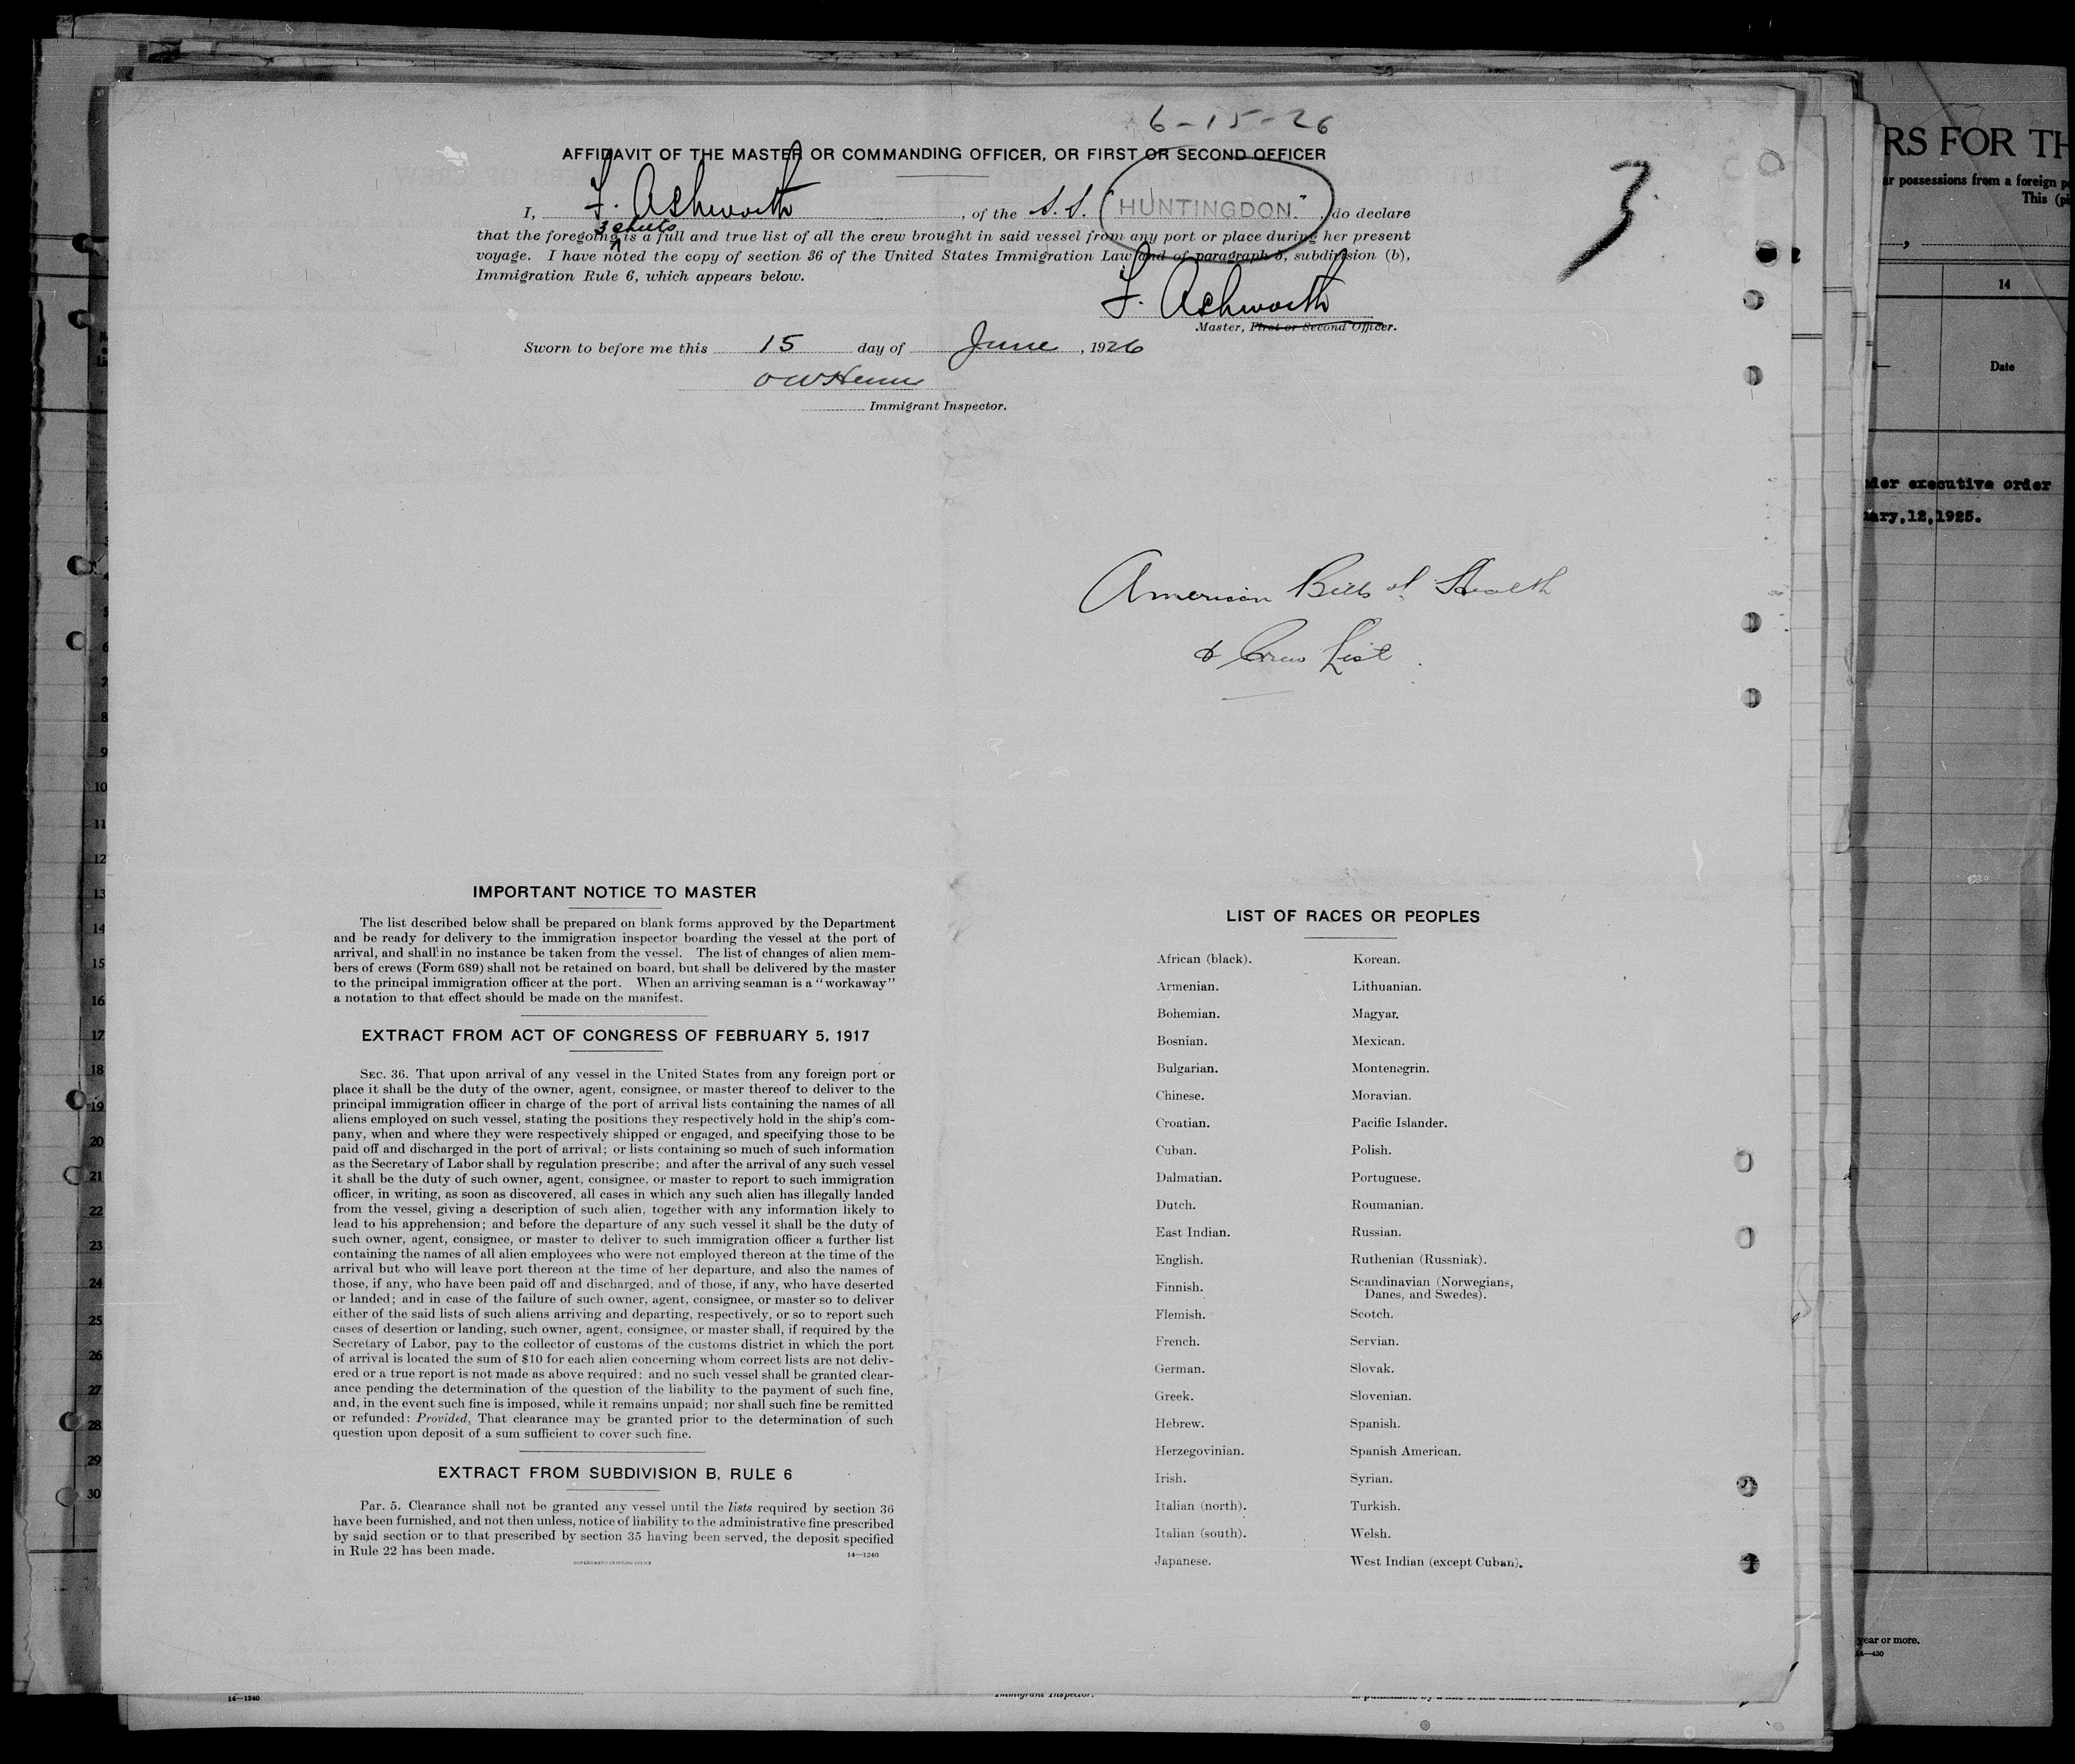 6-15-26
AFFIDAVIT OF THE MASTER OR COMMANDING OFFICER, OR FIRST OR SECOND OFFICER
3
I, F. Ashworth, of the S.S. "HUNTINGDON.", do declare
3 sheets
that the foregoing is a full and true list of all the crew brought in said vessel from any port or place during her present
voyage. I have noted the copy of section 36 of the United States Immigration Law and of paragraph 5, subdivision (b),
Immigration Rule 6, which appears below.
F. Ashworth
Master, First or Second Officer.
Sworn to before me this 15 day of June, 1926
Immigrant Inspector.
American Bills of Health
& Crew List
IMPORTANT NOTICE TO MASTER
The list described below shall be prepared on blank forms approved by the Department
and be ready for delivery to the immigration inspector boarding the vessel at the port of
arrival, and shall in no instance be taken from the vessel. The list of changes of alien mem-
bers of crews (Form 689) shall not be retained on board, but shall be delivered by the master
to the principal immigration officer at the port. When an arriving seaman is a "workaway"
a notation to that effect should be made on the manifest.
EXTRACT FROM ACT OF CONGRESS OF FEBRUARY 5, 1917
SEC. 36. That upon arrival of any vessel in the United States from any foreign port or
place it shall be the duty of the owner, agent, consignee, or master thereof to deliver to the
principal immigration officer in charge of the port of arrival lists containing the names of all
aliens employed on such vessel, stating the positions they respectively hold in the ship's com-
pany, when and where they were respectively shipped or engaged, and specifying those to be
paid off and discharged in the port of arrival; or lists containing so much of such information
as the Secretary of Labor shall by regulation prescribe; and after the arrival of any such vessel
it shall be the duty of such owner, agent, consignee, or master to report to such immigration
officer, in writing, as soon as discovered, all cases in which any such alien has illegally landed
from the vessel, giving a description of such alien, together with any information likely to
lead to his apprehension; and before the departure of any such vessel it shall be the duty of
such owner, agent, consignee, or master to deliver to such immigration officer a further list
containing the names of all alien employees who were not employed thereon at the time of the
arrival but who will leave port thereon at the time of her departure, and also the names of
those, if any, who have been paid off and discharged, and of those, if any, who have deserted
or landed; and in case of the failure of such owner, agent, consignee, or master so to deliver
either of the said lists of such aliens arriving and departing, respectively, or so to report such
cases of desertion or landing, such owner, agent, consignee, or master shall, if required by the
Secretary of Labor, pay to the collector of customs of the customs district in which the port
of arrival is located the sum of $10 for each alien concerning whom correct lists are not deliv-
ered or a true report is not made as above required; and no such vessel shall be granted clear-
ance pending the determination of the question of the liability to the payment of such fine,
and, in the event such fine is imposed, while it remains unpaid; nor shall such fine be remitted
or refunded: Provided, That clearance may be granted prior to the determination of such
question upon deposit of a sum sufficient to cover such fine.
EXTRACT FROM SUBDIVISION B, RULE 6
Par. 5. Clearance shall not be granted any vessel until the lists required by section 36
have been furnished, and not then unless, notice of liability to the administrative fine prescribed
by said section or to that prescribed by section 35 having been served, the deposit specified
in Rule 22 has been made.
14—1240
GOVERNMENT PRINTING OFFICE
LIST OF RACES OR PEOPLES
African (black).
Armenian.
Bohemian.
Bosnian.
Bulgarian.
Chinese.
Croatian.
Cuban.
Dalmatian.
Dutch.
East Indian.
English.
Finnish.
Flemish.
French.
German.
Greek.
Hebrew.
Herzegovinian.
Irish.
Italian (north).
Italian (south).
Japanese.
Korean.
Lithuanian.
Magyar.
Mexican.
Montenegrin.
Moravian.
Pacific Islander.
Polish.
Portuguese.
Roumanian.
Russian.
Ruthenian (Russniak).
Scandinavian (Norwegians,
Danes, and Swedes).
Scotch.
Servian.
Slovak.
Slovenian.
Spanish.
Spanish American.
Syrian.
Turkish.
Welsh.
West Indian (except Cuban).
RS FOR TH
or possessions from a foreign p
This (p
14
Date
der executive order
ary,12,1925.
year or more.
14—430
6
7
8
9
10
11
12
13
14
15
16
17
18
19
20
21
22
23
24
25
26
27
28
29
30
14—1240
Immigrant Inspector.